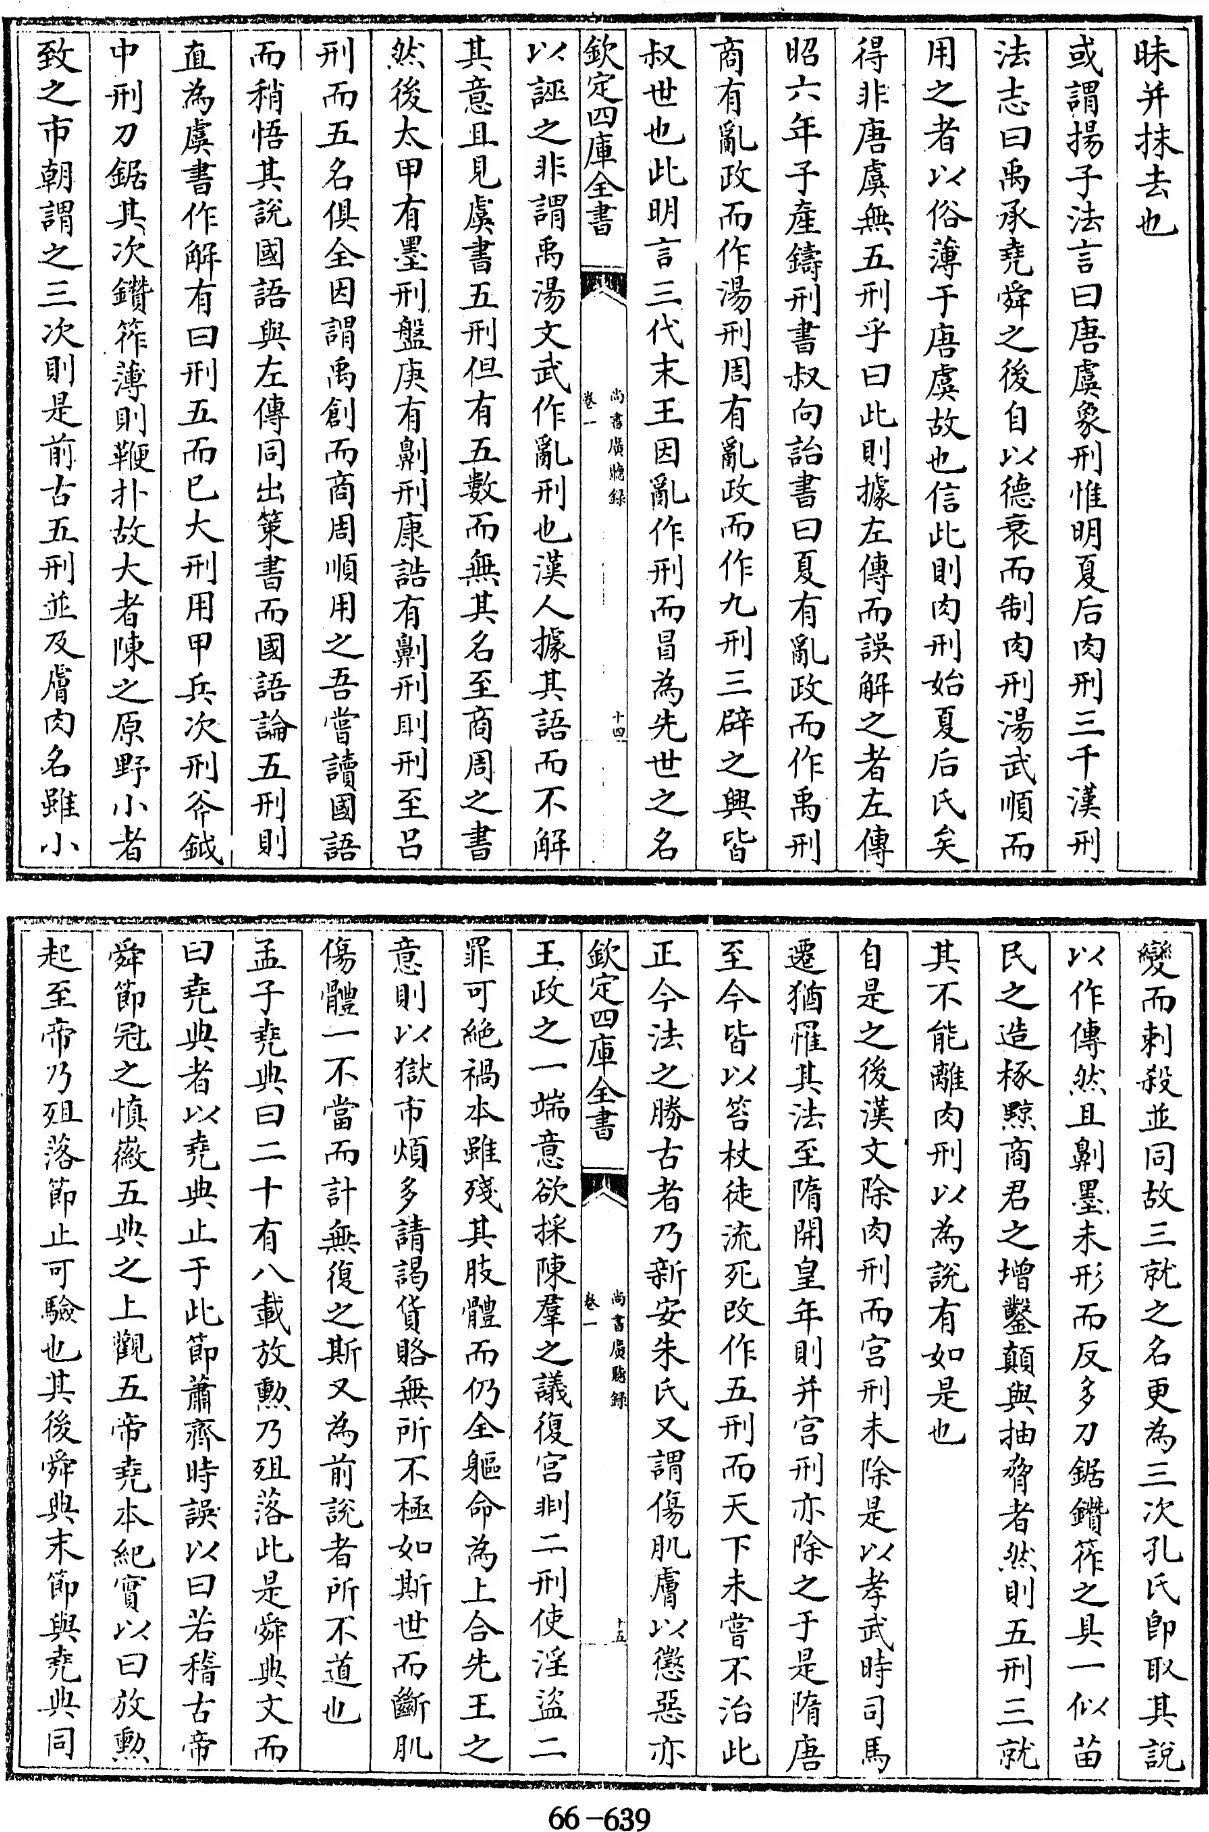 昧并抹去也
或謂揚子法言曰唐虞象刑惟明夏后肉刑三千漢刑
法志曰禹承堯舜之後自以德衰而制肉刑湯武順而
用之者以俗薄于唐虞故也信此則肉刑始夏后氏矣
得非唐虞無五刑乎曰此則據左傳而誤解之者左傳
昭六年子產鑄刑書叔向詒書曰夏有亂政而作禹刑
商有亂政而作湯刑周有亂政而作九刑三辟之興皆
叔世也此明言三代末王因亂作刑而冒為先世之名
欽定四庫全書
尚書廣聽錄
卷一
十四
以誣之非謂禹湯文武作亂刑也漢人據其語而不解
其意且見虞書五刑但有五數而無其名至商周之書
然後太甲有墨刑盤庚有劓刑康誥有劓刑刵刑至呂
刑而五名俱全因謂禹創而商周順用之吾嘗讀國語
而稍悟其說國語與左傳同出策書而國語論五刑則
直為虞書作解有曰刑五而已大刑用甲兵次刑斧鉞
中刑刀鋸其次鑽笮薄則鞭扑故大者陳之原野小者
致之市朝謂之三次則是前古五刑並及膚肉名雖小
變而刺殺並同故三就之名更為三次孔氏即取其說
以作傳然且劓墨未形而反多刀鋸鑽笮之具一似苗
民之造椓黥商君之增鑿顛與抽脅者然則五刑三就
其不能離肉刑以為說有如是也
自是之後漢文除肉刑而宮刑未除是以孝武時司馬
遷猶罹其法至隋開皇年則并宮刑亦除之于是隋唐
至今皆以笞杖徒流死改作五刑而天下未嘗不治此
正今法之勝古者乃新安朱氏又謂傷肌膚以懲惡亦
欽定四庫全書
尚書廣聽錄
卷一
十五
王政之一端意欲採陳羣之議復宮剕二刑使淫盜二
罪可絶禍本雖殘其肢體而仍全軀命為上合先王之
意則以獄市煩多請謁貨賂無所不極如斯世而斷肌
傷體一不當而計無復之斯又為前說者所不道也
孟子堯典曰二十有八載放勲乃殂落此是舜典文而
曰堯典者以堯典止于此節蕭齊時誤以曰若稽古帝
舜節冠之慎徽五典之上觀五帝堯本紀實以曰放勲
起至帝乃殂落節止可驗也其後舜典末節與堯典同
66-639